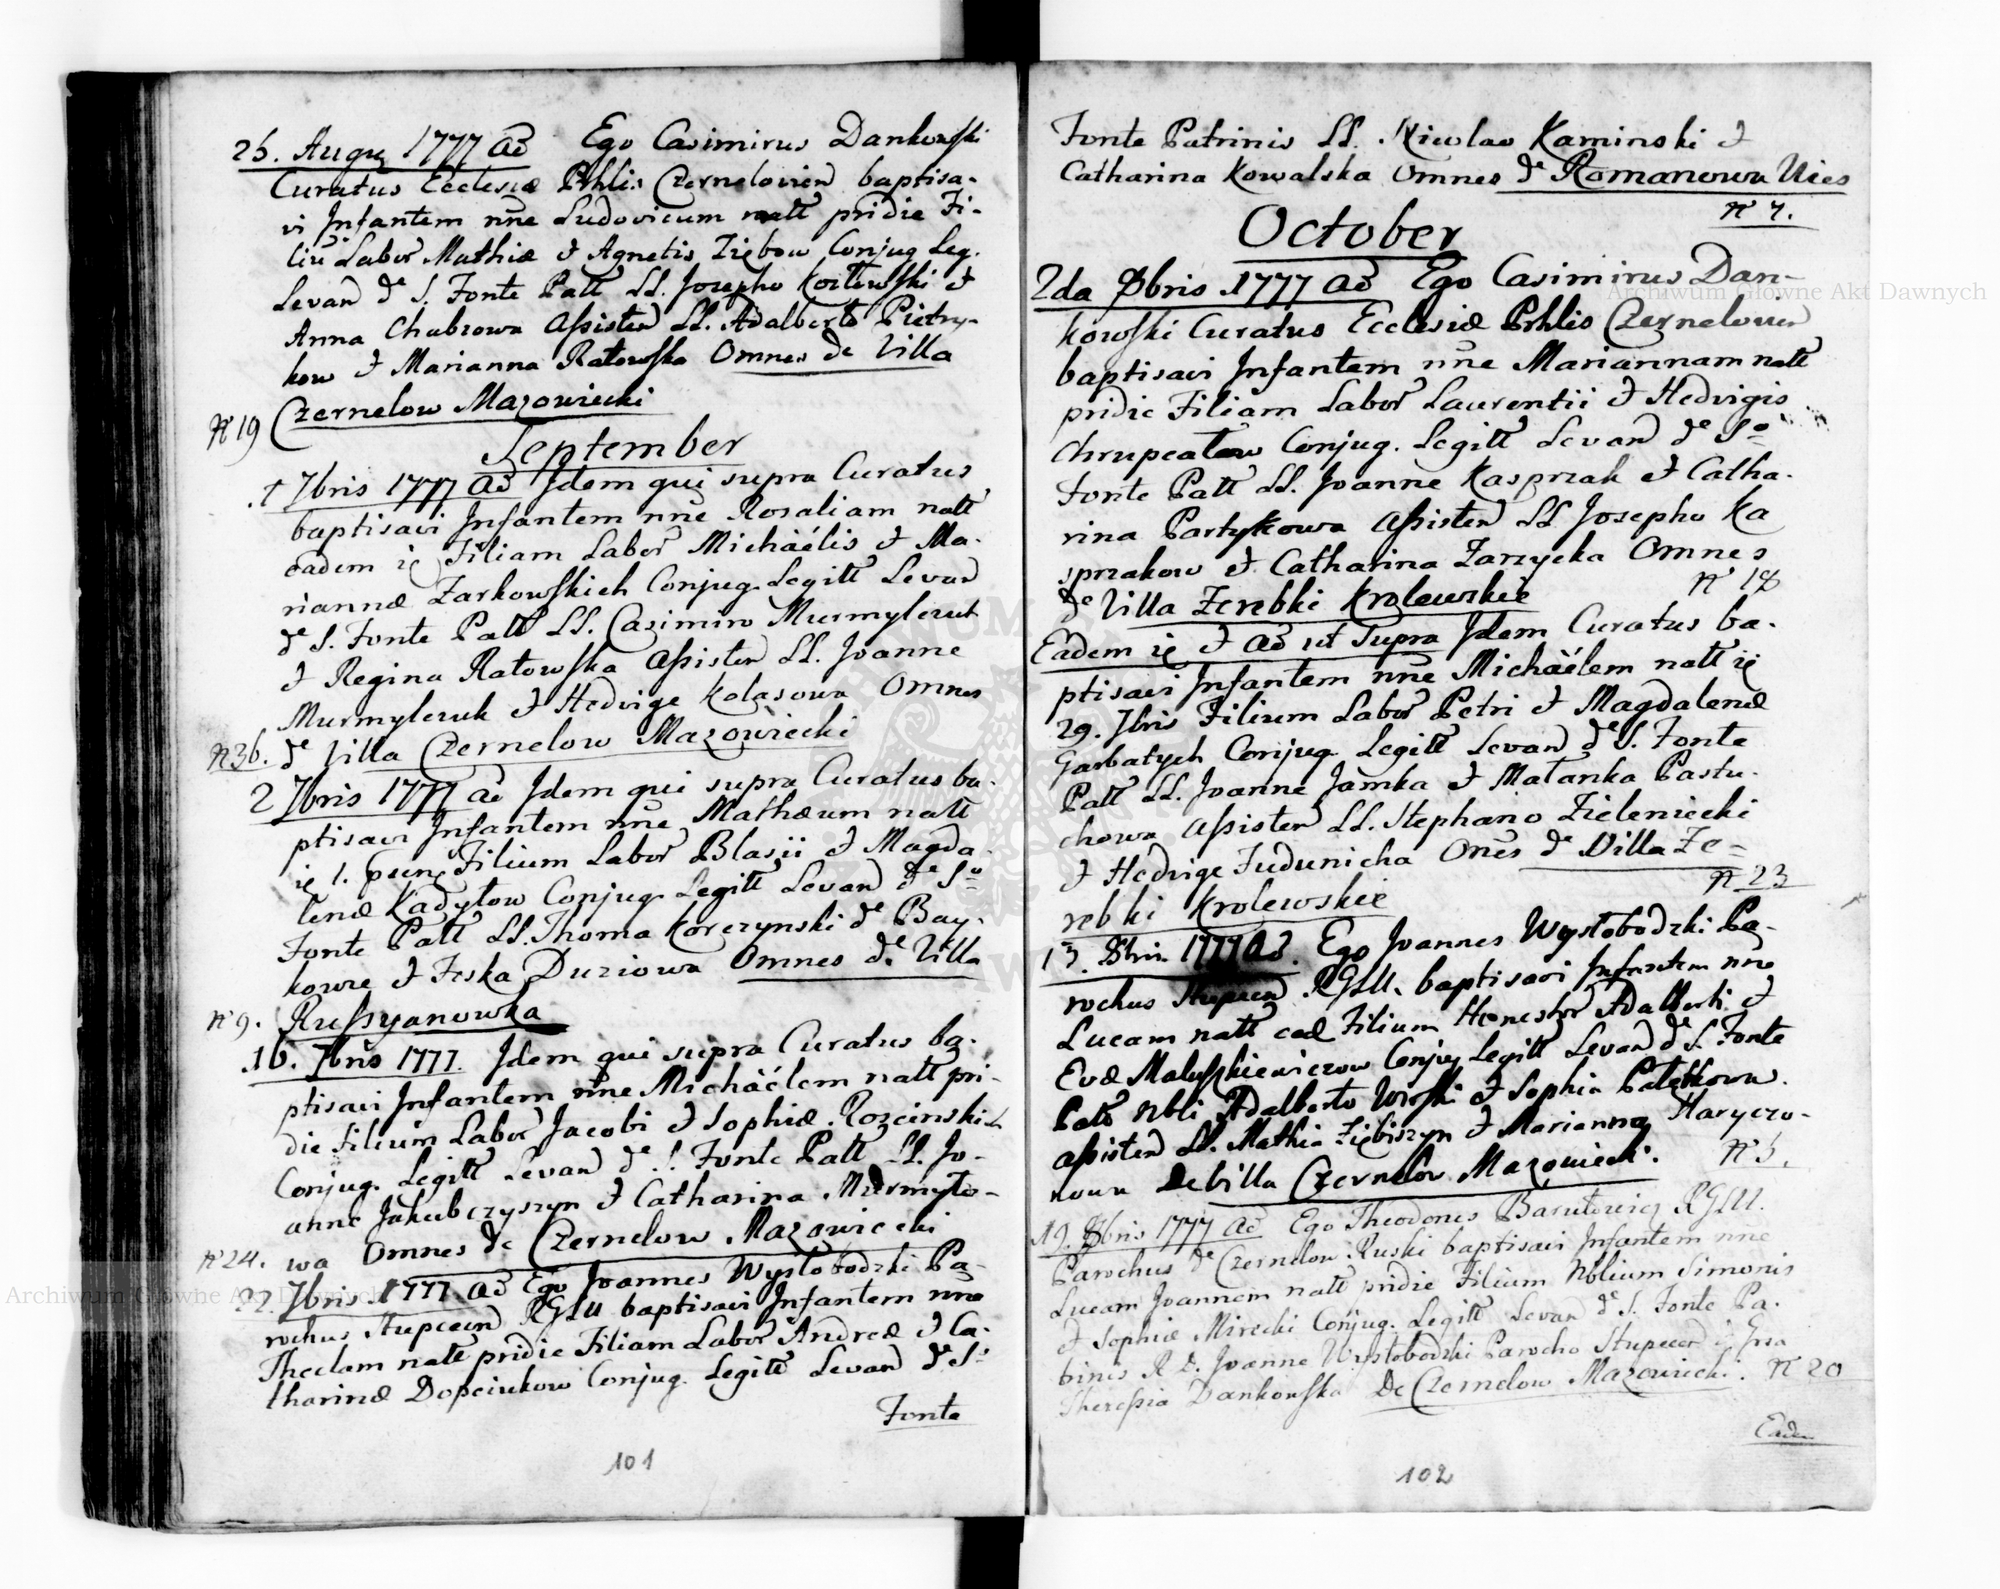 26. Augu 1777 ad Ego Casimirus Dankowski
Curatus Ecclesiæ Prhlis Czernelovien baptisa-
vi Infantem nne Ludovicum natt pridie Fi-
liu Labor Mathiæ et Agnetis Ziębow Conjug Leg.
Levan de S. Fonte Patt LL. Josepho Kozłowski et
Anna Chabzowa Assisten LL. Adalberto Pietry-
kow et Marianna Ratowska Omnes de Villa
N 19 Czernelow Mazowiecki
September
1 7bris 1777 ad Idem qui supra Curatus
baptisavi Infantem nne Rosaliam natt
eadem Filiam Labor Michaëlis et Ma-
riannæ Zarkowskich Conjug Legitt Levan
de S. Fonte Patt LL. Casimiro Murmyleruk
et Regina Ratowska Assisten LL. Joanne
Murmyleruk et Hedvige Kolasowa Omnes
N 36. de Villa Czernelow Mazowiecki
2 7bris 1777 ad Idem qui supra Curatus ba-
ptisavi Infantem nne Mathæum natt
1. Filium Labor Blasii et Magda-
lenæ Kadyłow Conjug Legitt Levan de So
Fonte Patt LL. Thoma Korczynski de Bay-
kowce et Feska Duziowa Omnes de Villa
N 9. Russyanowka
16. 7bris 1777. Idem qui supra Curatus ba-
ptisavi Infantem nne Michaëlem natt pri-
die Filium Labor Jacobi et Sophiæ
Conjug. Legitt Levan de S. Fonte Patt LL. Jo-
anne Jakubczyszyn et Catharina Murmyło-
N 24. wa Omnes de Czernelow Mazowiecki
22 7bris 1777 ad Ego Joannes Wysłobodzki Pa-
rochus Stupecen RGLU baptisavi Infantem nne
Theclam natt pridie Filiam Labor Andreæ et Ca-
tharinæ Dopciukow Conjug. Legitt Levan de S
Fonte
101
Fonte Patrinis LL. Nicolao Kaminski et
Catharina Kowalska Omnes de Romanowa
N 7.
October
2da 8bris 1777 ad Ego Casimirus Dan-
kowski Curatus Ecclesiæ Prhlis Czernelovien
baptisavi Infantem nne Mariannam natt
pridie Filiam Labor Laurentii et Hedvigis
Chrupcałow Conjug. Legitt Levan de So
Fonte Patt LL. Joanne Kasprzak et Catha-
rina Partykowa Assisten LL Josepho Ka
sprzakow et Catharina Zarzycka Omnes
de Villa Zerebki Krolewskie N 18
Eadem et ad ut supra Idem Curatus ba-
ptisavi Infantem nne Michaëlem natt
29. 7bris Filium Labor Petri et Magdalenæ
Garbatych Conjug Legitt Levan de S. Fonte
Patt LL. Joanne Jamka et Matanka Pastu-
chowa Assisten LL. Stephano Zieleniecki
et Hedvige Fudunicha Ones de Villa Ze-
rebki Krolewskie N 23
13. 8bris 1777 Ad. Ego Joannes Wysłobodzki Pa-
rochus Stupecen RGLU. baptisavi Infantem nne
Lucam natt ead Filium Honestor Adalberti et
Evæ Małyszkiewiczow Conjug Legitt Levan de S. Fonte
Patt Nbli Adalberto Wirski et Sophia
Assisten LL. Mathia Ziębiszyn et Marianna Haryczo-
nowa de Villa Czernelow Mazowiecki. N 5.
19. 8bris 1777 Ad Ego Theodorus Barutowicz RGLU.
Parochus de Czernelow Ruski baptisavi Infantem nne
Lucam Joannem natt pridie Filium Nblium Simonis
et Sophiæ Mirecki Conjug. Legitt Levan de S. Fonte Pa-
trinis R. D. Joanne Wysłobodzki Parocho Stupecen
Theresia Dankowska De Czernelow Mazowiecki. N 20
Eadem
102
Archiwum Główne Akt Dawnych
Archiwum Główne Akt Dawnych